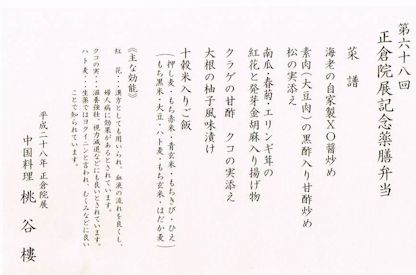 第六十八回
正倉院展記念薬膳弁当
菜譜
海老の自家製XO醤炒め
素肉(大豆肉)の黒酢入り甘酢炒め
松の実添え
南瓜・春菊・エリンギ茸の
紅花と発芽金胡麻入り揚げ物
クラゲの甘酢 クコの実添え
大根の柚子風味漬け
十穀米入りご飯
(押し麦・もち赤米・青玄米・もちきび・ひえ
もち黒米・大豆・ハト麦・もち玄米・はだか麦)
《主な効能》
紅花・・漢方としても用いられ、血液の流れを良くし、
婦人病に効果があるとされています。
クコの実・・滋養強壮、視力減退などにも良いとされています。
ハト麦・・生薬ではヨクイニンと言われ、むくみなどに良い
ことで知られています。
平成二十八年 正倉院展
中国料理 桃谷樓